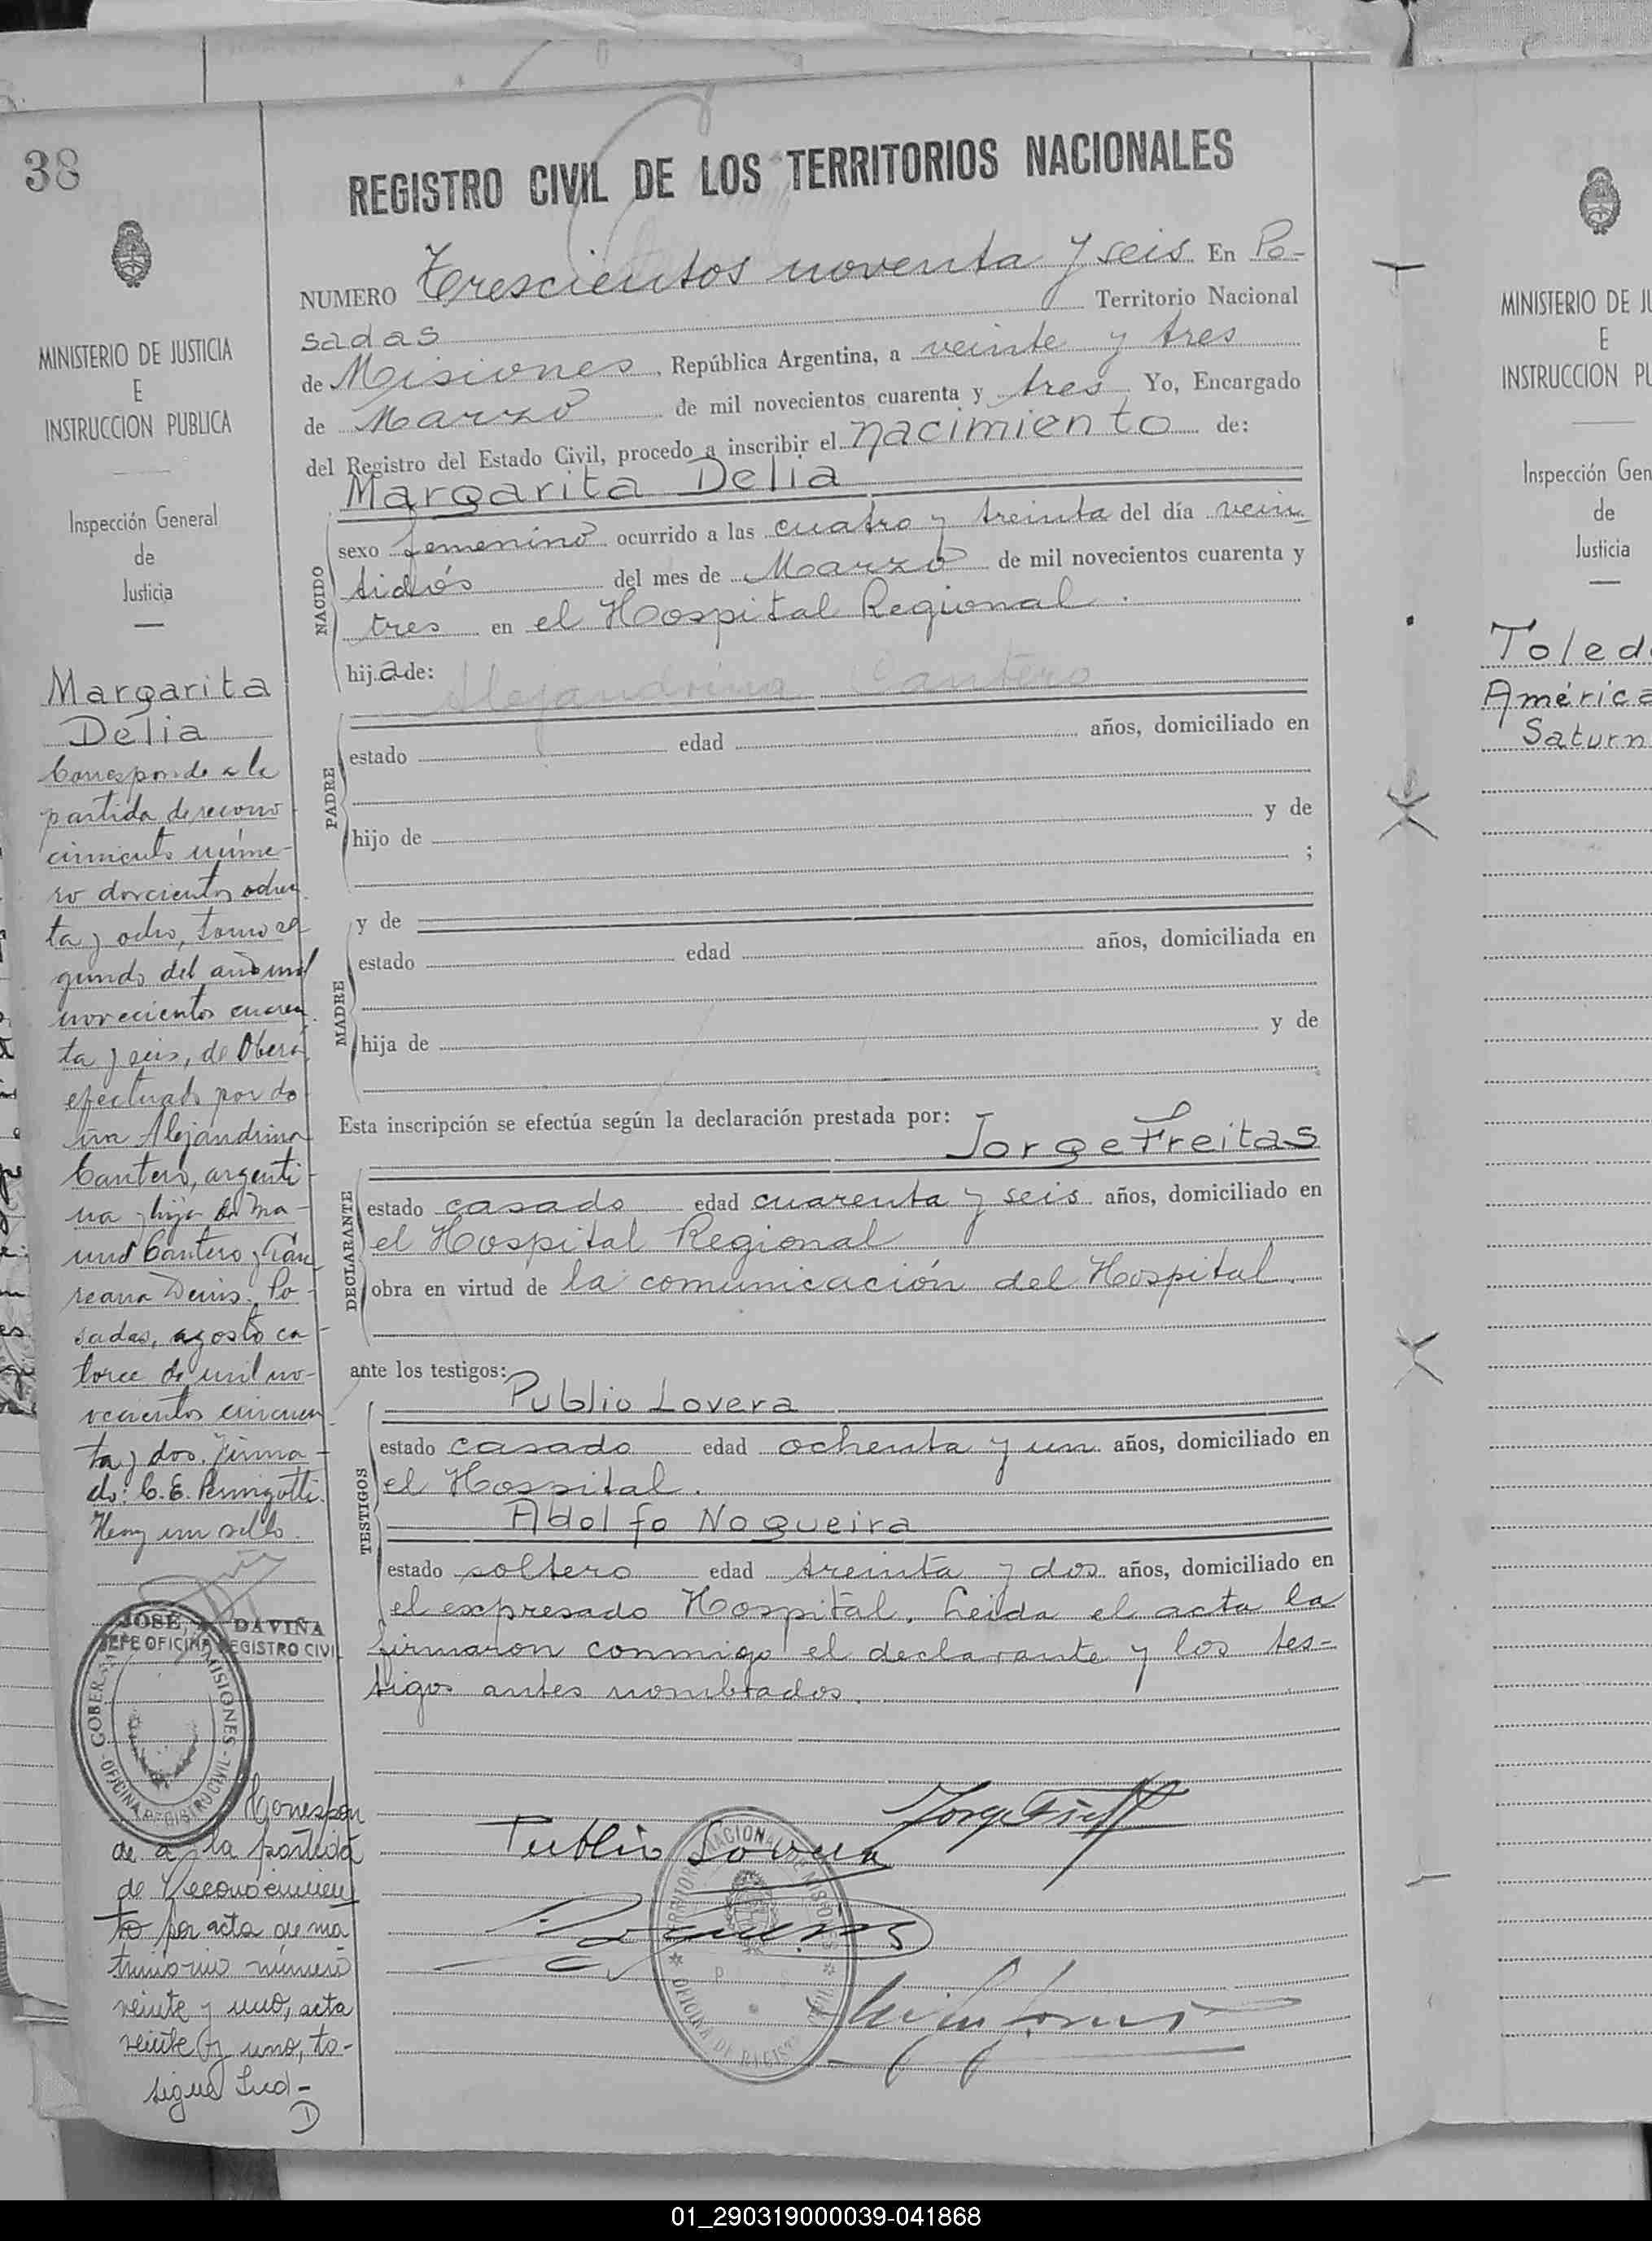 38
MINISTERIO DE JUSTICIA
E
INSTRUCCION PUBLICA
Inspección General
de
Justicia
Margarita
Delia
Corresponde a la
partida de recono
cimiento núme-
ro doscientos ochen
ta y ocho, tomo se
gundo del año mil
novecientos cuaren
ta y seis, de Oberá,
efectuado por do
ña Alejandrina
Cantero, argenti-
na, hija de Ma-
Cantero y
Denis. Po-
sadas, agosto ca-
torce de mil no-
vecientos cincuen
ta y dos. Firma-
do: C. E.
Hay un sello.
JOSE DAVIÑA
JEFE OFICINA REGISTRO CIVIL
GOBER MISIONES - OFICINA REGISTRO CIVIL -
Correspon
de a la partida
de Reconocimien
to por acta de ma
trimonio número
veinte y uno, acta
veinte y uno, to-
sigue
REGISTRO CIVIL DE LOS TERRITORIOS NACIONALES
NUMERO Trescientos noventa y seis En Po-
sadas Territorio Nacional
de Misiones, República Argentina, a veinte y tres
de Marzo de mil novecientos cuarenta y tres Yo, Encargado
del Registro del Estado Civil, procedo a inscribir el nacimiento de:
Margarita Delia
NACIDO
sexo femenino ocurrido a las cuatro y treinta del día vein
tidós del mes de Marzo de mil novecientos cuarenta y
tres en el Hospital Regional.
hija de: Alejandrina Cantero
PADRE
estado edad años, domiciliado en
hijo de y de
;
MADRE
y de
estado edad años, domiciliada en
hija de y de
Esta inscripción se efectúa según la declaración prestada por:
Jorge Freitas
DECLARANTE
estado casado edad cuarenta y seis años, domiciliado en
el Hospital Regional
obra en virtud de la comunicación del Hospital.
ante los testigos:
Publio Lovera
TESTIGOS
estado casado edad ochenta y un años, domiciliado en
el Hospital.
Adolfo Nogueira
estado soltero edad treinta y dos años, domiciliado en
el expresado Hospital. Leida el acta la
firmaron conmigo el declarante y los tes-
tigos antes nombrados.
Publio Lovera
MINISTERIO DE JU
E
INSTRUCCION PU
Inspección Gen
de
Justicia
Toled
América
Saturn
01_290319000039-041868